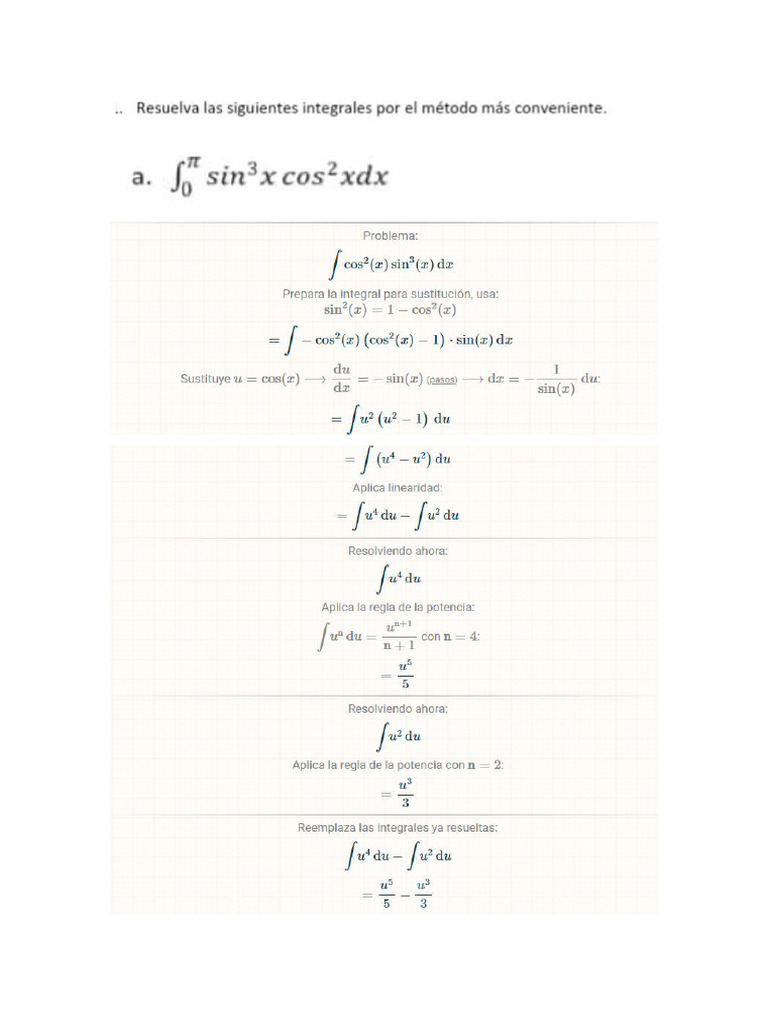 .. Resuelva las siguientes integrales por el método más conveniente.
a. ∫₀^π sin³x cos²xdx
Problema:
∫ cos²(x) sin³(x) dx
Prepara la integral para sustitución, usa:
sin²(x) = 1 − cos²(x)
= ∫ − cos²(x) (cos²(x) − 1) · sin(x) dx
Sustituye u = cos(x) ⟶ du/dx = − sin(x) (pasos) ⟶ dx = − 1/sin(x) du:
= ∫ u² (u² − 1) du
= ∫ (u⁴ − u²) du
Aplica linearidad:
= ∫ u⁴ du − ∫ u² du
Resolviendo ahora:
∫ u⁴ du
Aplica la regla de la potencia:
∫ uⁿ du = uⁿ⁺¹/(n + 1) con n = 4:
= u⁵/5
Resolviendo ahora:
∫ u² du
Aplica la regla de la potencia con n = 2:
= u³/3
Reemplaza las integrales ya resueltas:
∫ u⁴ du − ∫ u² du
= u⁵/5 − u³/3